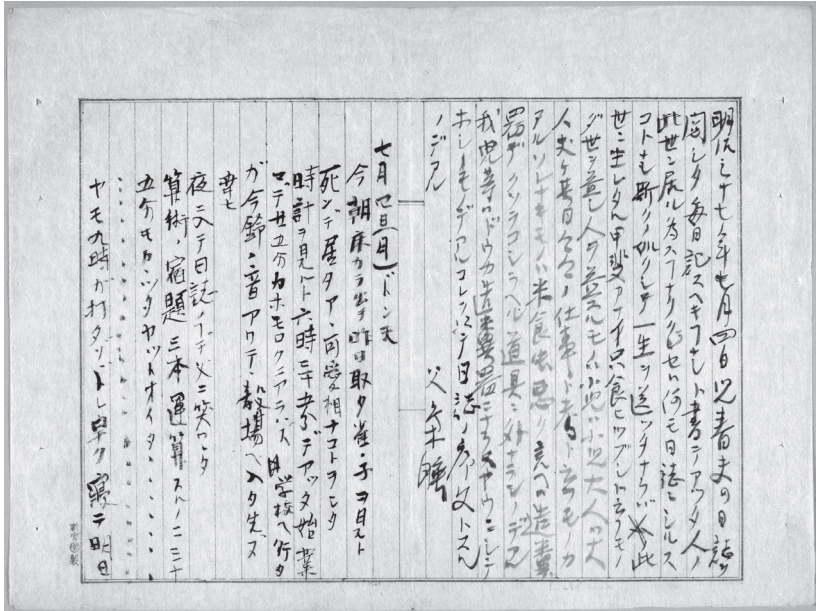 明治三十七年七月四日児春夫の日誌ヲ
閲シタ毎日記スヘキコナシト書テアツタ人ノ
此世ニ居ル為スコナク
コトモ斯クノ如クシテ一生ヲ送ツチナラバ此
世ニ生レタル甲斐ガナイ只食ヒツブシト云フモノ
ダ世ヲ益シ人ヲ益スルモ小児ハ小児大人ハ大
人丈ケ毎日
アルソレナキモノハ米食虫悪ク言ヘバ造糞
器デクソヲコシラヘル道具ニ外ナランノデアル
我児等ハドウカ造糞器ニナラヌヤウニシテ
ホシーモノデアルコレヲ以テ日誌ノ序文トスル
ノデアル
父
七月四日(月)ドン天
今朝床カラ出テ昨日取タ雀ノ子ヲ見ルト
死ンデ居タアヽ可愛相ナコトヲシタ
時計ヲ見ルト六時三十五分デアツタ始業
マデ廿五分カホモロクニアラハズ学校ヘ行タ
ガ今鈴ノ音アワテヽ教場ヘ入タ先ヅ
幸セ
夜ニ入テ日誌ノコデ父ニ笑ワレタ
算術ノ宿題三本運算スルノニ三十
五分モカヽツタヤットオイタ
ヤモ九時ガ打タゾドレ早ク寝テ明日